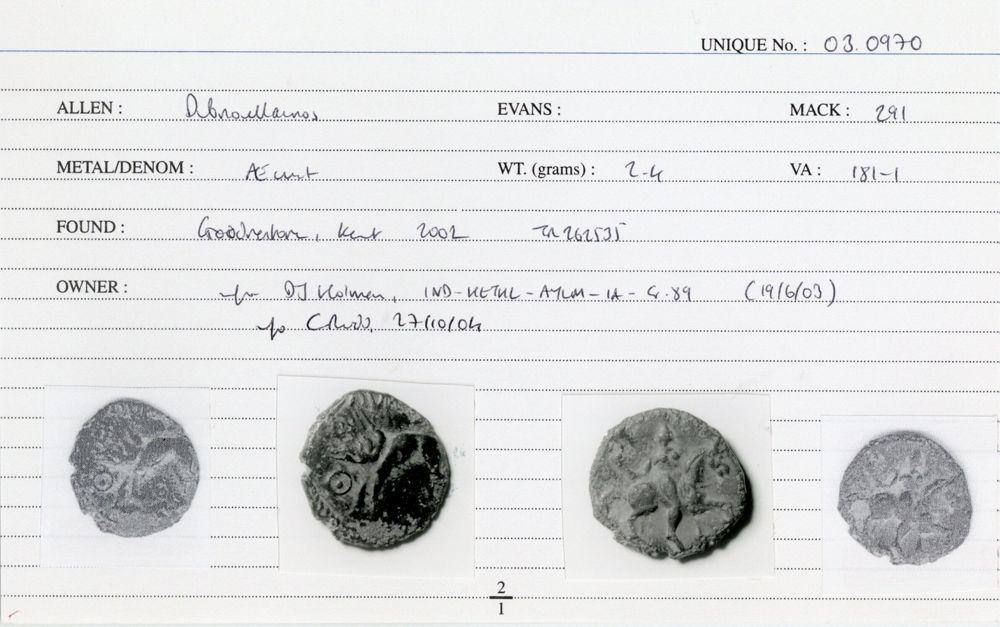 UNIQUE No. : 03.0970
ALLEN : Dubnovellaunos EVANS : MACK : 291
METAL/DENOM : Æ unit WT. (grams) : 2.4 VA : 181-1
FOUND : Goodnestone, Kent 2002 TR 262535
OWNER : DJ Holman, IND-METAL-AYLM-IA- (19/6/03)
27/10/04
2
1